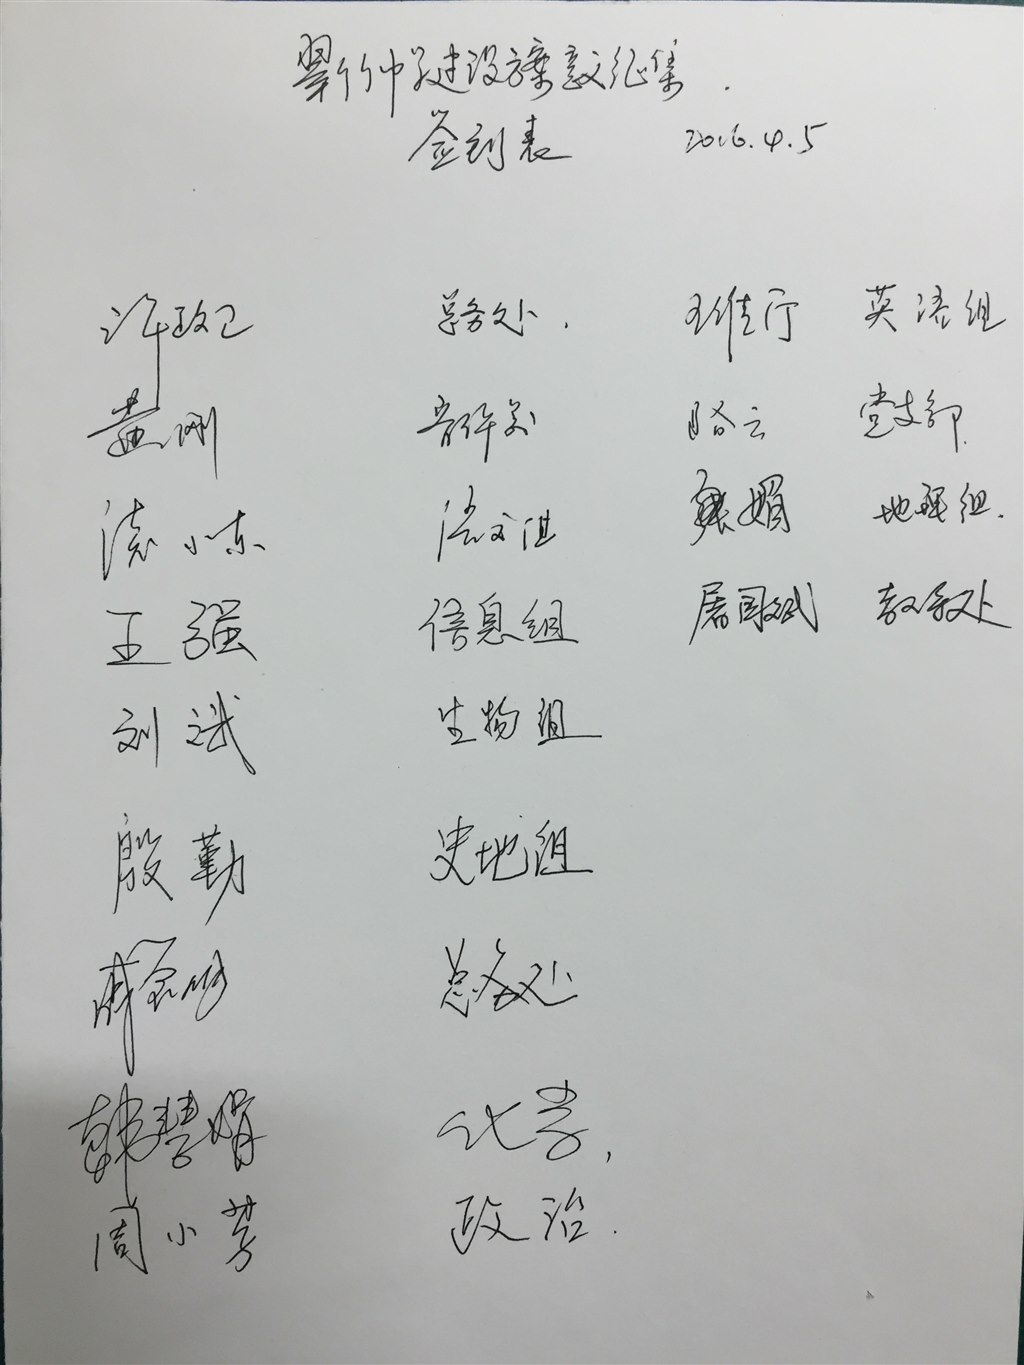 建设方案意见征集.
签到表 2016.4.5
许政卫 总务处. 王维宁 英语组
黄刚 音体美 路云 党支部.
小东 语文组 魏娟 地理组.
王强 信息组 屠国斌 教务处
刘斌 生物组
殷勤 史地组
戚 总务处
韩慧娟 化学,
周小芳 政治.